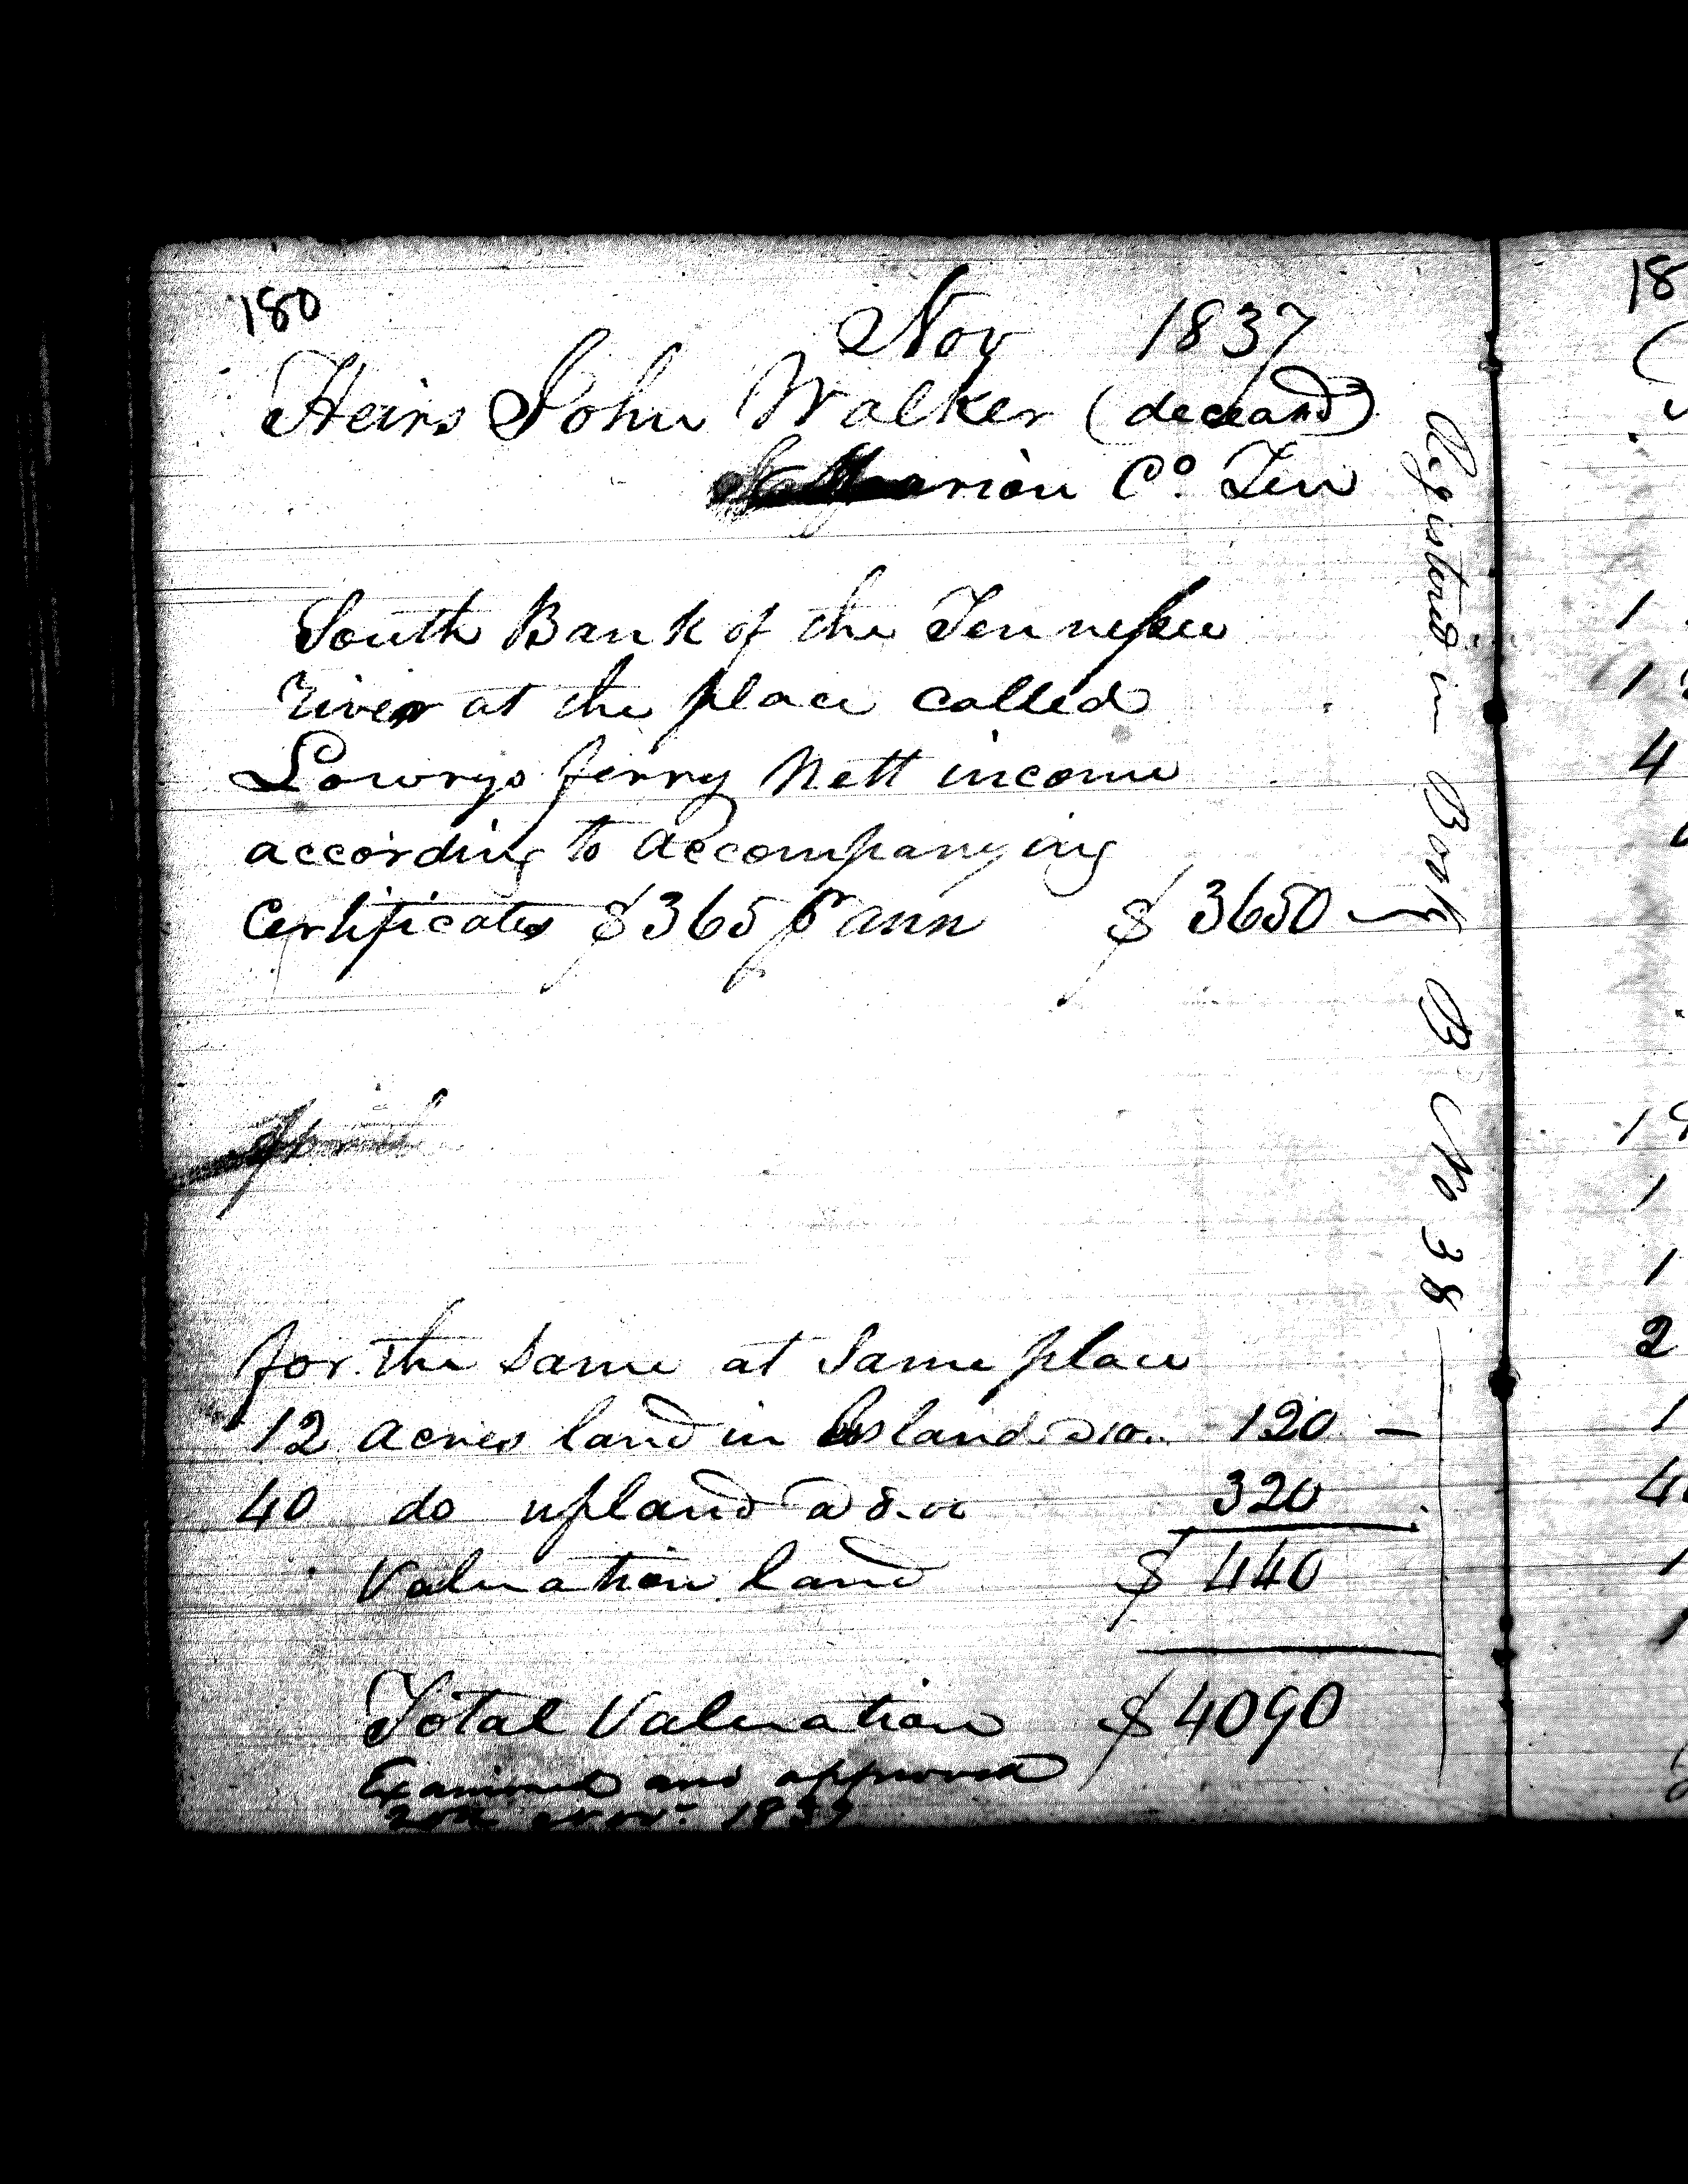 180
Nov 1837
Heirs John Walker (deceasd)
Marion Co. Ten
South Bank of the Tennessee
river at the place called
Lowrys ferry Nett income
according to accompanying
Certificates $365 pr ann $ 3650
for the same at Same place
12 acres land in Island @ 10.. 120 —
40 do upland @ 8.00 320
Valuation land $ 440
Total Valuation $ 4090
Examined and approved
20th Nov. 1837
Registered in Book B No 38
18
1
1
4
19
1
1
2
1
4
1
1